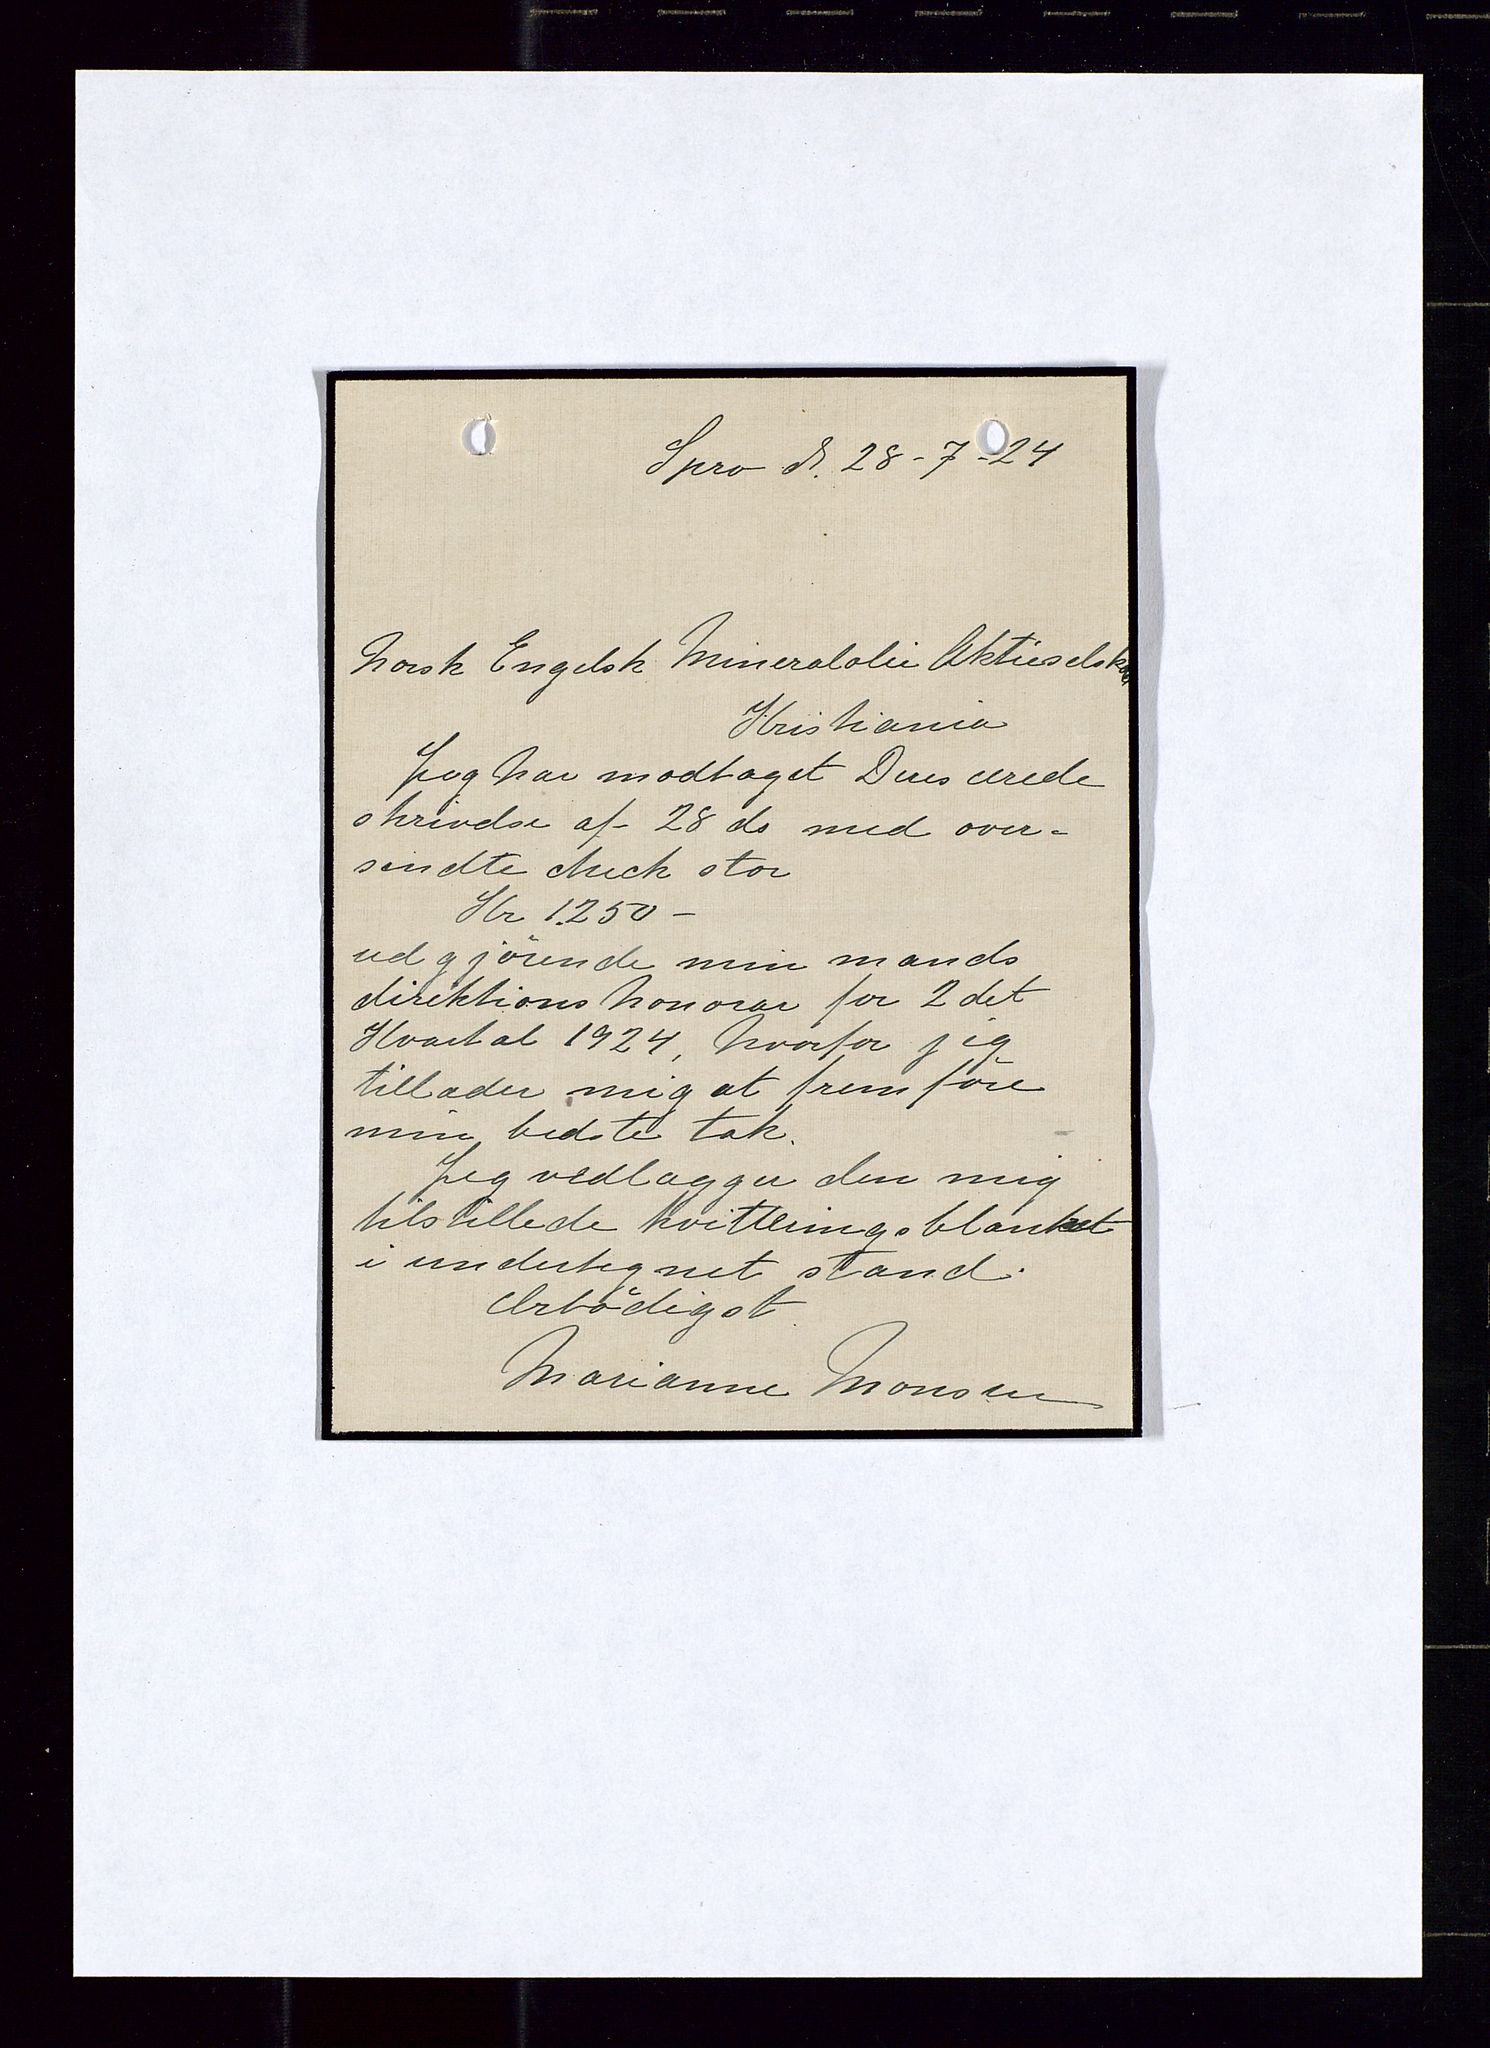 Spro d. 28-7-24
Norsk Engelsk Mineralolie Aktieselskab
Kristiania
Jeg har modtaget Deres ærede
skrivelse af 28 ds med over-
sendte check stor
Kr 1250 –
udgjörende min mands
direktionshonorar for 2det
Kvartal 1924, hvorfor jeg
tillader mig at fremföre
min bedste tak.
Jeg vedlægger den mig
tilstillede kvitteringsblanket
i undertegnet stand.
Ærbödigst
Marianne Monsen